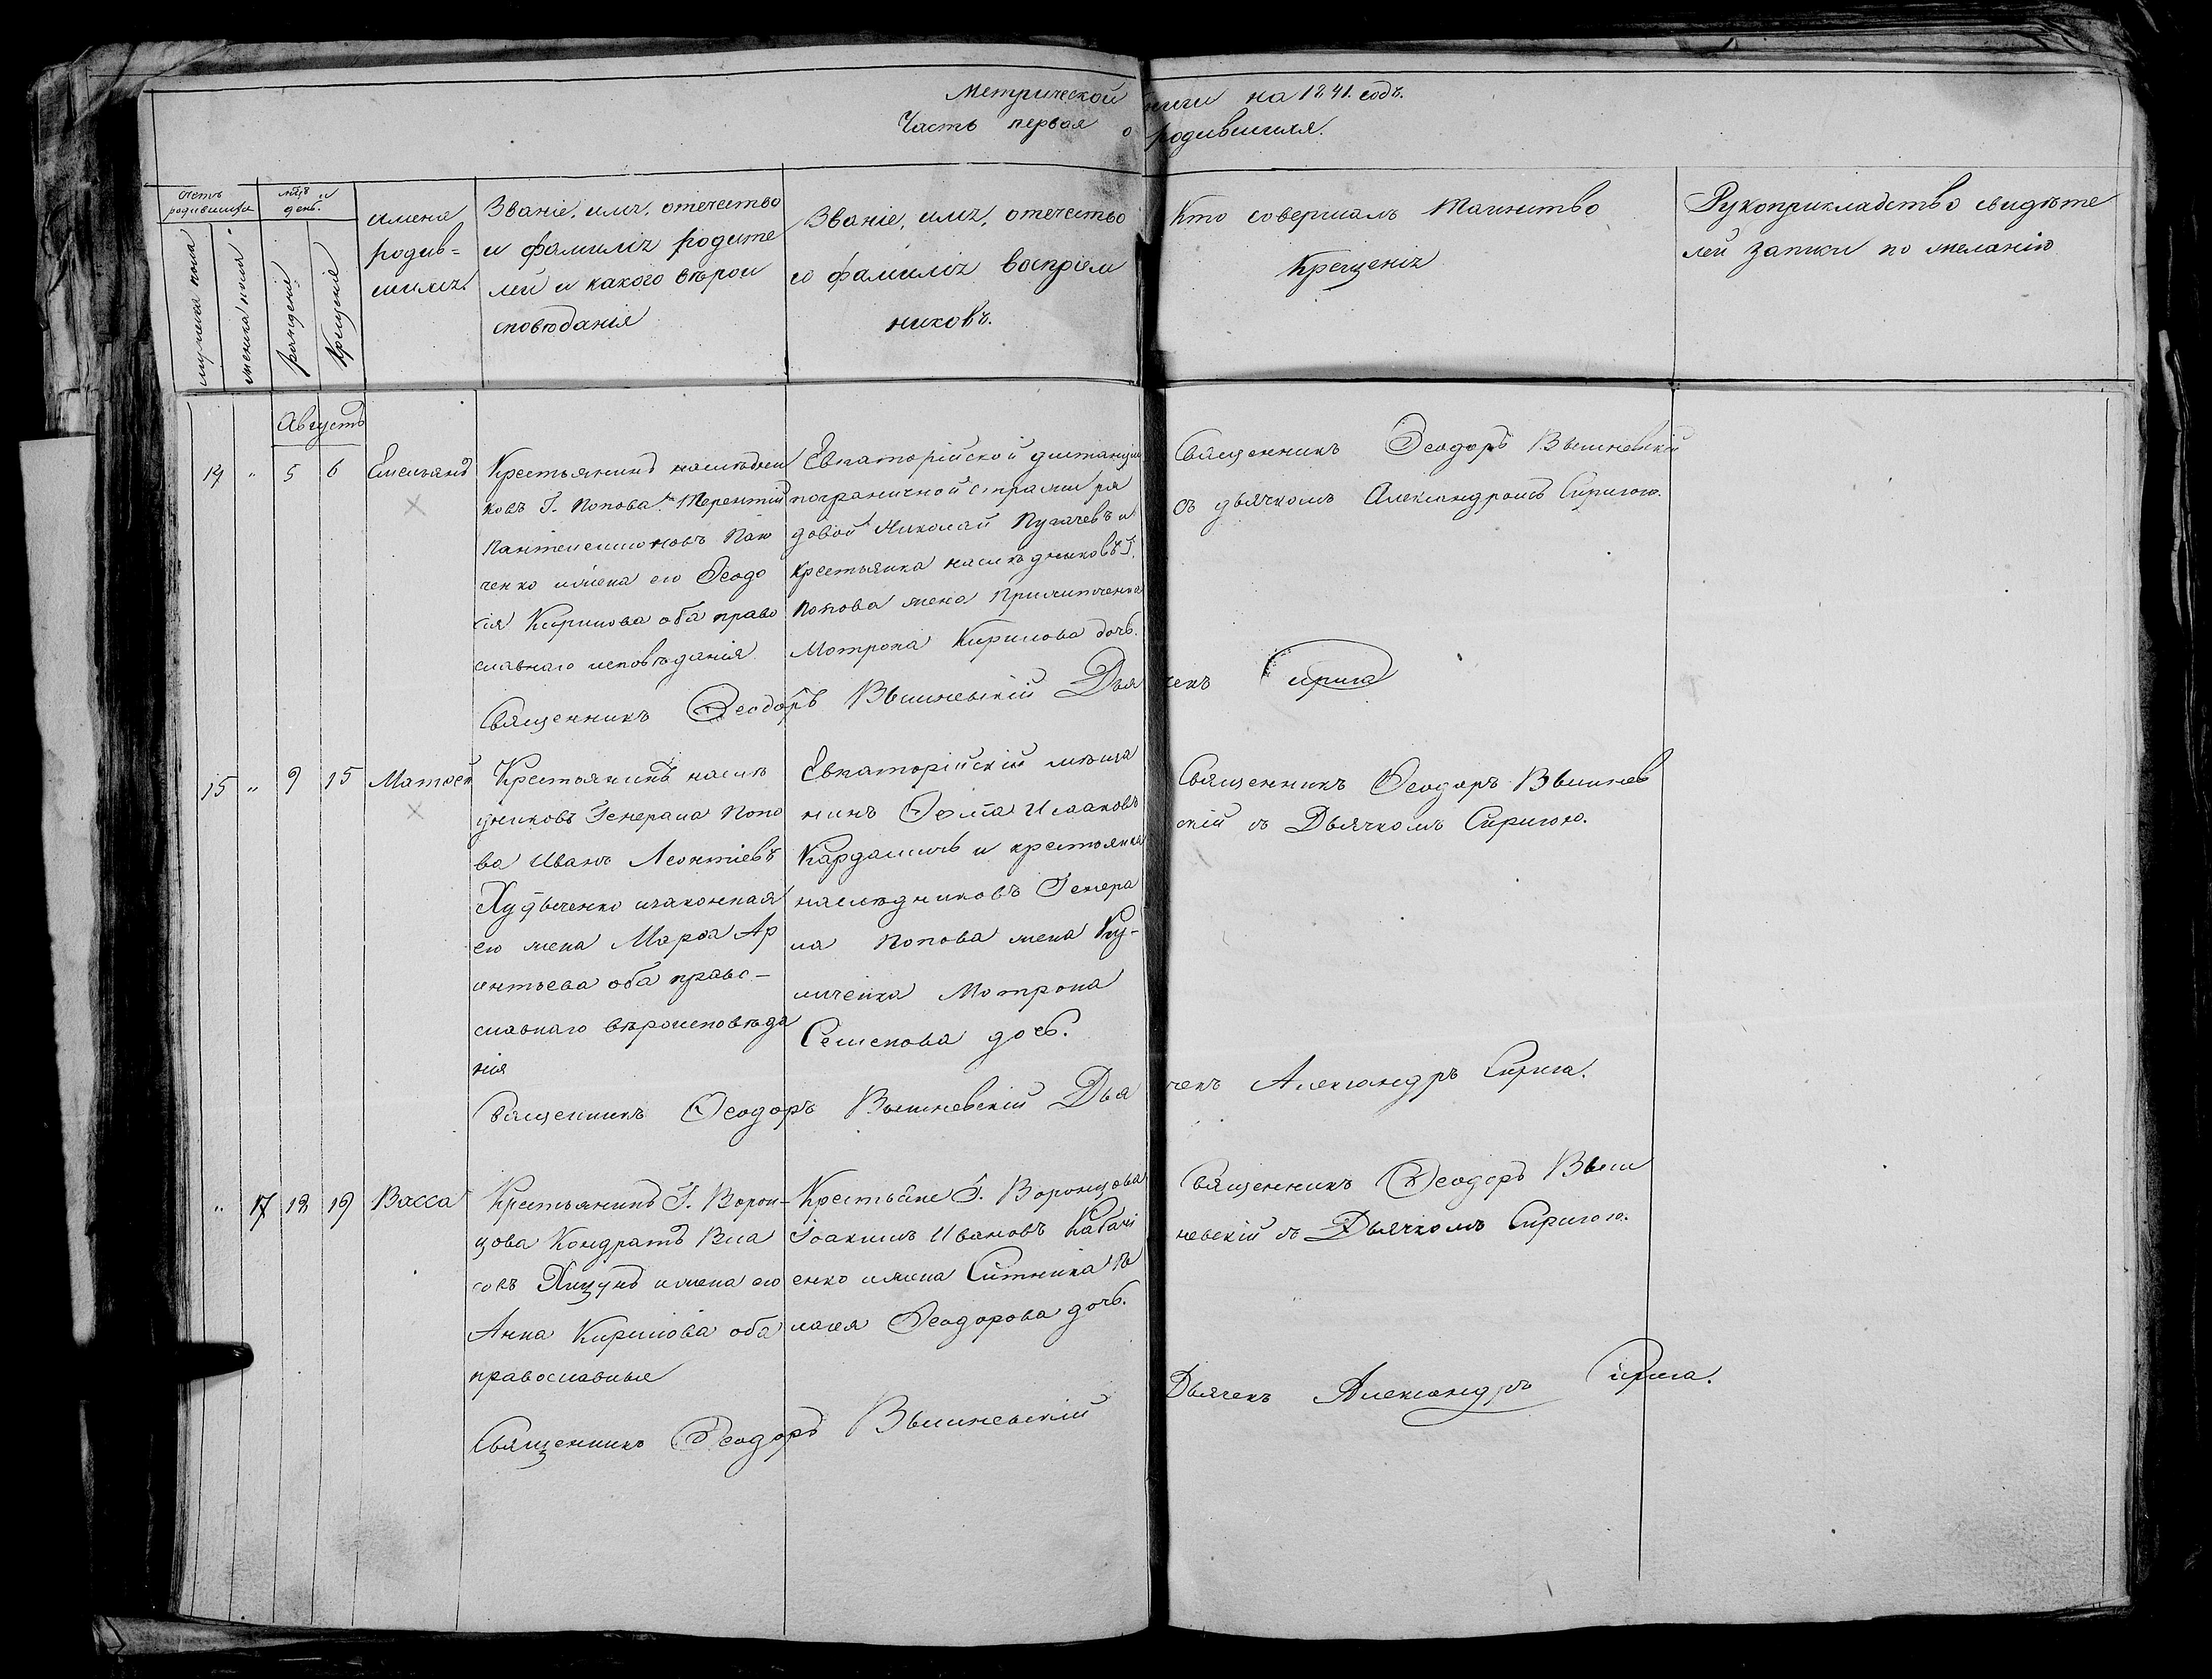 Метрической книги на 1841. годъ.
Часть первая о родившихся.
Счетъ родившихся
мѣсяцъ и день.
мужеска пола
женска пола
рожденіе
Крещеніе
имена
родив=
шихся.
Званіе, имя, отечество
и фамилія родите
лей и какого вѣрои
сповѣданія
Званіе, имя, отечество
и фамилія воспріем
никовъ.
Кто совершалъ таинство
Крещенія
Рукоприкладство свидѣте
лей записки по желанію
Августъ
14 " 5 6
Крестьянинъ наслѣдни
ковъ Г. Попова Терентій
ченко и жена его Ѳеодо
сія Кирилова оба право
славнаго исповѣданія
Евпаторійской дистанціи
пограничной стражи ря
довой Николай Пугачевъ и
крестьянка наслѣдниковъ Г.
Попова жена
Мотрона Кирилова дочь.
Священникъ Ѳеодоръ Вышневскій
съ дьячкомъ Александромъ Сиригою.
Священникъ Ѳеодоръ Вышневскій Дьячекъ Сирига
15 " 9 15 Матѳей
Крестьянинъ наслѣ
дниковъ Генерала Попо
ва Иванъ Леонтіевъ
и законная
его жена Марѳа Ар
ентьева оба право-
славнаго вѣроисповѣда
нія
Евпаторійскій мѣща
нинъ Ѳома Исааковъ
Кардашевъ и крестьянка
наслѣдниковъ Генера
ла Попова жена Ку-
личенка Мотрона
Семенова дочь.
Священникъ Ѳеодоръ Вышнев
скій съ Дьячкомъ Сиригою.
Священникъ Ѳеодоръ Вышневскій Дьячекъ Александръ Сирига.
" 17 18 19 Васса
Крестьянинъ Г. Ворон-
цова Кондратъ Вла
совъ Хицунъ и жена его
Анна Кирилова оба
православные
Крестьяне Г. Воронцова
Іоакимъ Ивановъ
енко и жена Ситника Пе
лагея Ѳеодорова дочь.
Священникъ Ѳеодоръ Выш
невскій съ Дьячкомъ Сиригою.
Священникъ Ѳеодоръ Вышневскій Дьячекъ Александръ Сирига.